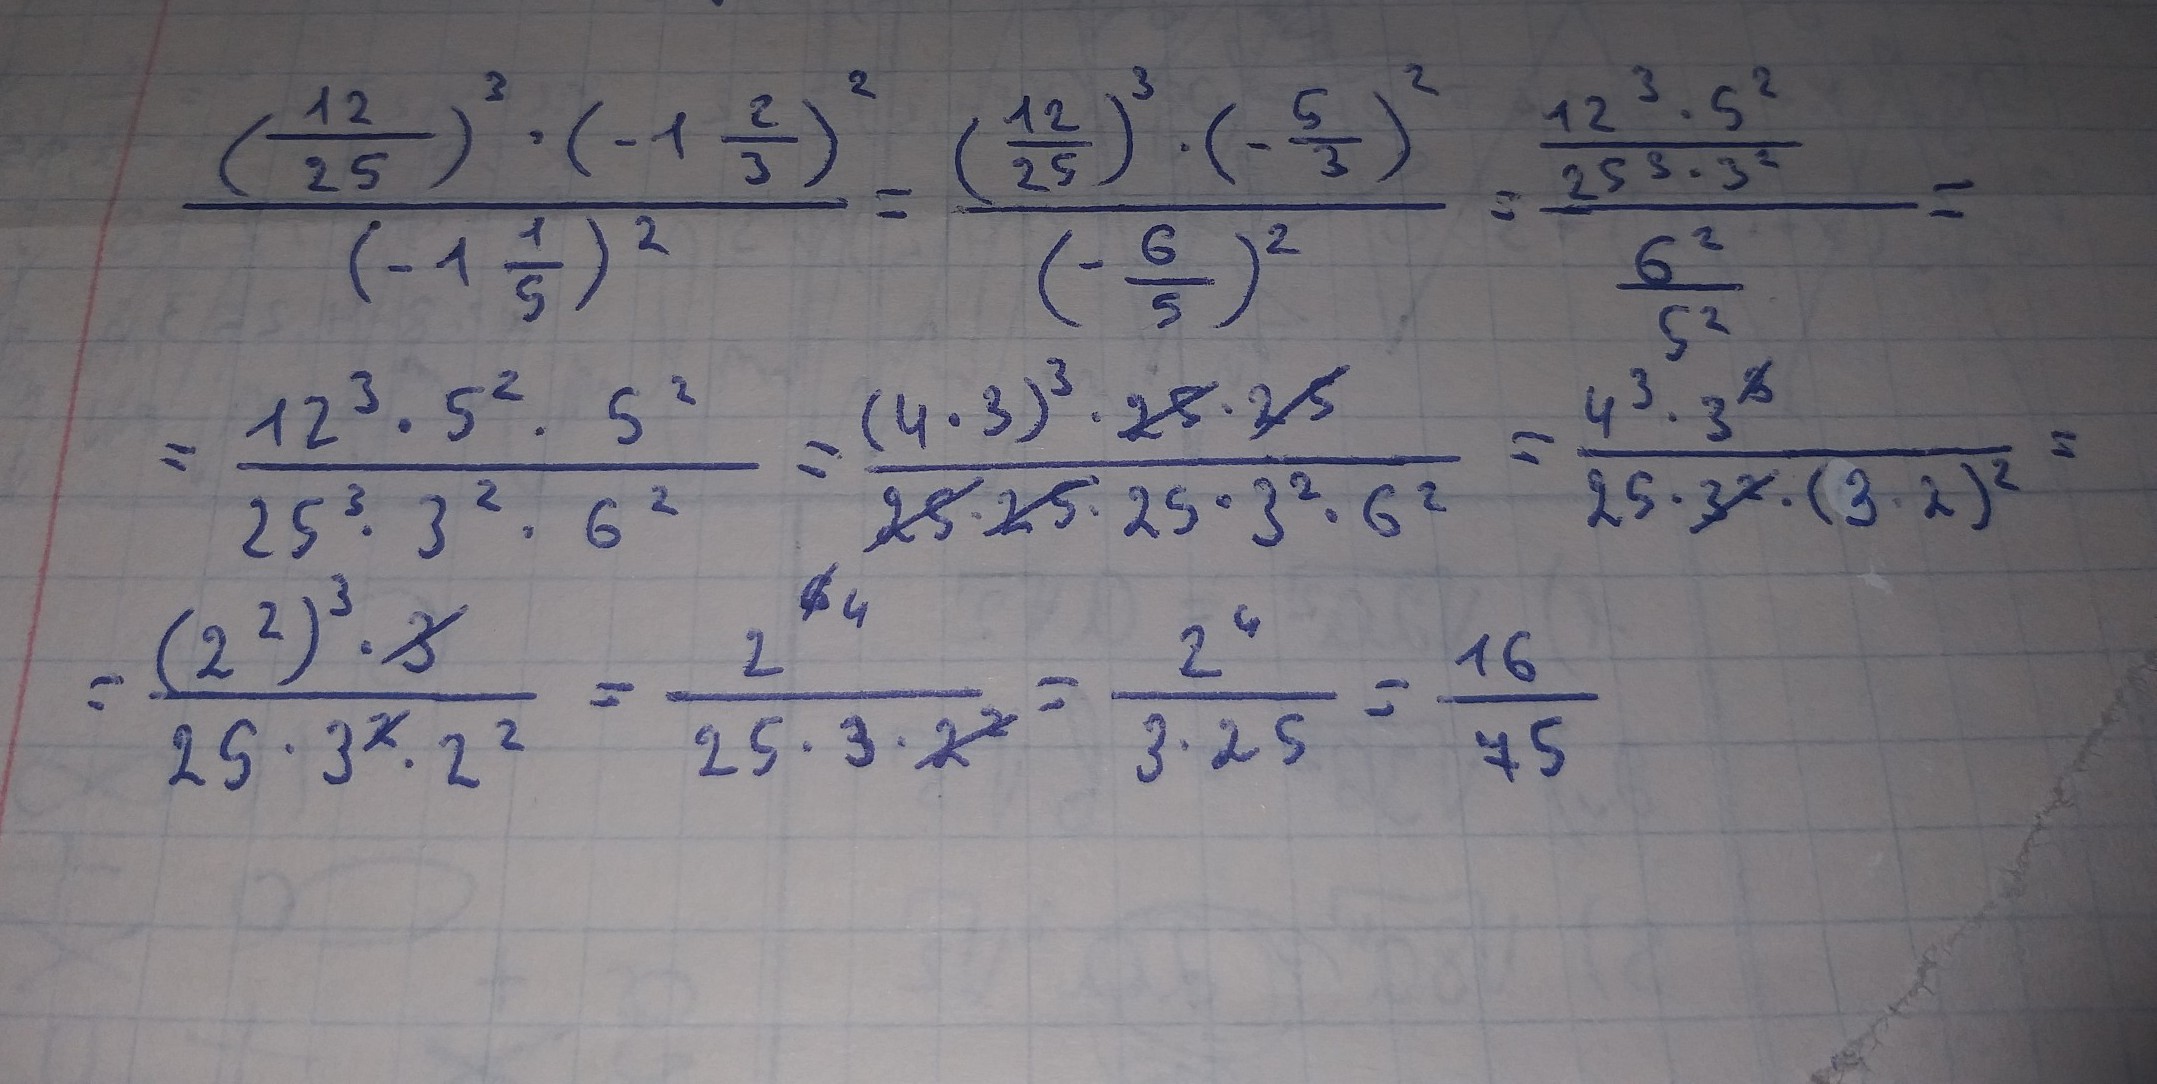 (12/25)³ · (-1 2/3)² / (-1 1/5)² = (12/25)³ · (-5/3)² / (-6/5)² = 12³ · 5² / 25³ · 3² / 6² / 5² =
= 12³ · 5² · 5² / 25³ · 3² · 6² = (4 · 3)³ · 25 · 25 / 25 · 25 · 25 · 3² · 6² = 4³ · 3³ / 25 · 3² · (3 · 2)² =
= (2²)³ · 3 / 25 · 3² · 2² = 2⁶ ⁴ / 25 · 3 · 2² = 2⁴ / 3 · 25 = 16 / 75